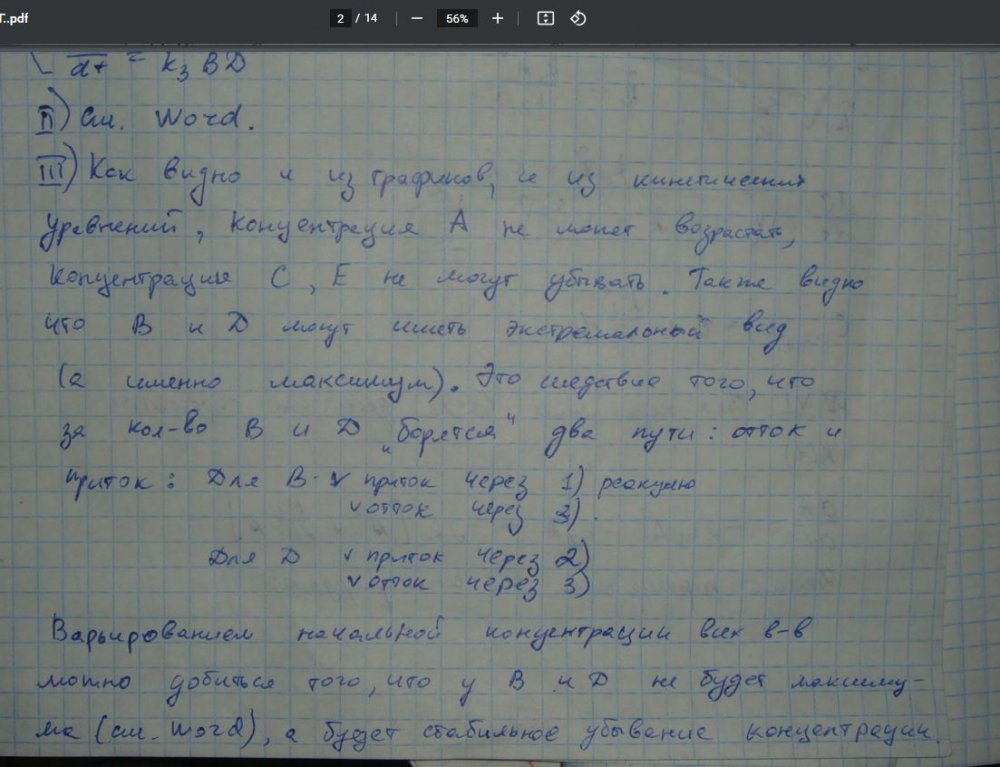 T..pdf
2 / 14
56%
dt = k₃ B D
II) См. Word.
III) Как видно и из графиков, и из кинетических
уравнений, концентрация А не может возрастать,
концентрации С, Е не могут убывать. Также видно
что В и D могут иметь экстремальный вид
(а именно максимум). Это следствие того, что
за кол-во В и D „борятся" два пути: отток и
приток: Для В - v приток через 1) реакцию
v отток через 3).
Для D v приток через 2)
v отток через 3)
Варьированием начальной концентрации всех в-в
можно добиться того, что у В и D не будет максиму-
ма (см. Word), а будет стабильное убывание концентрации.